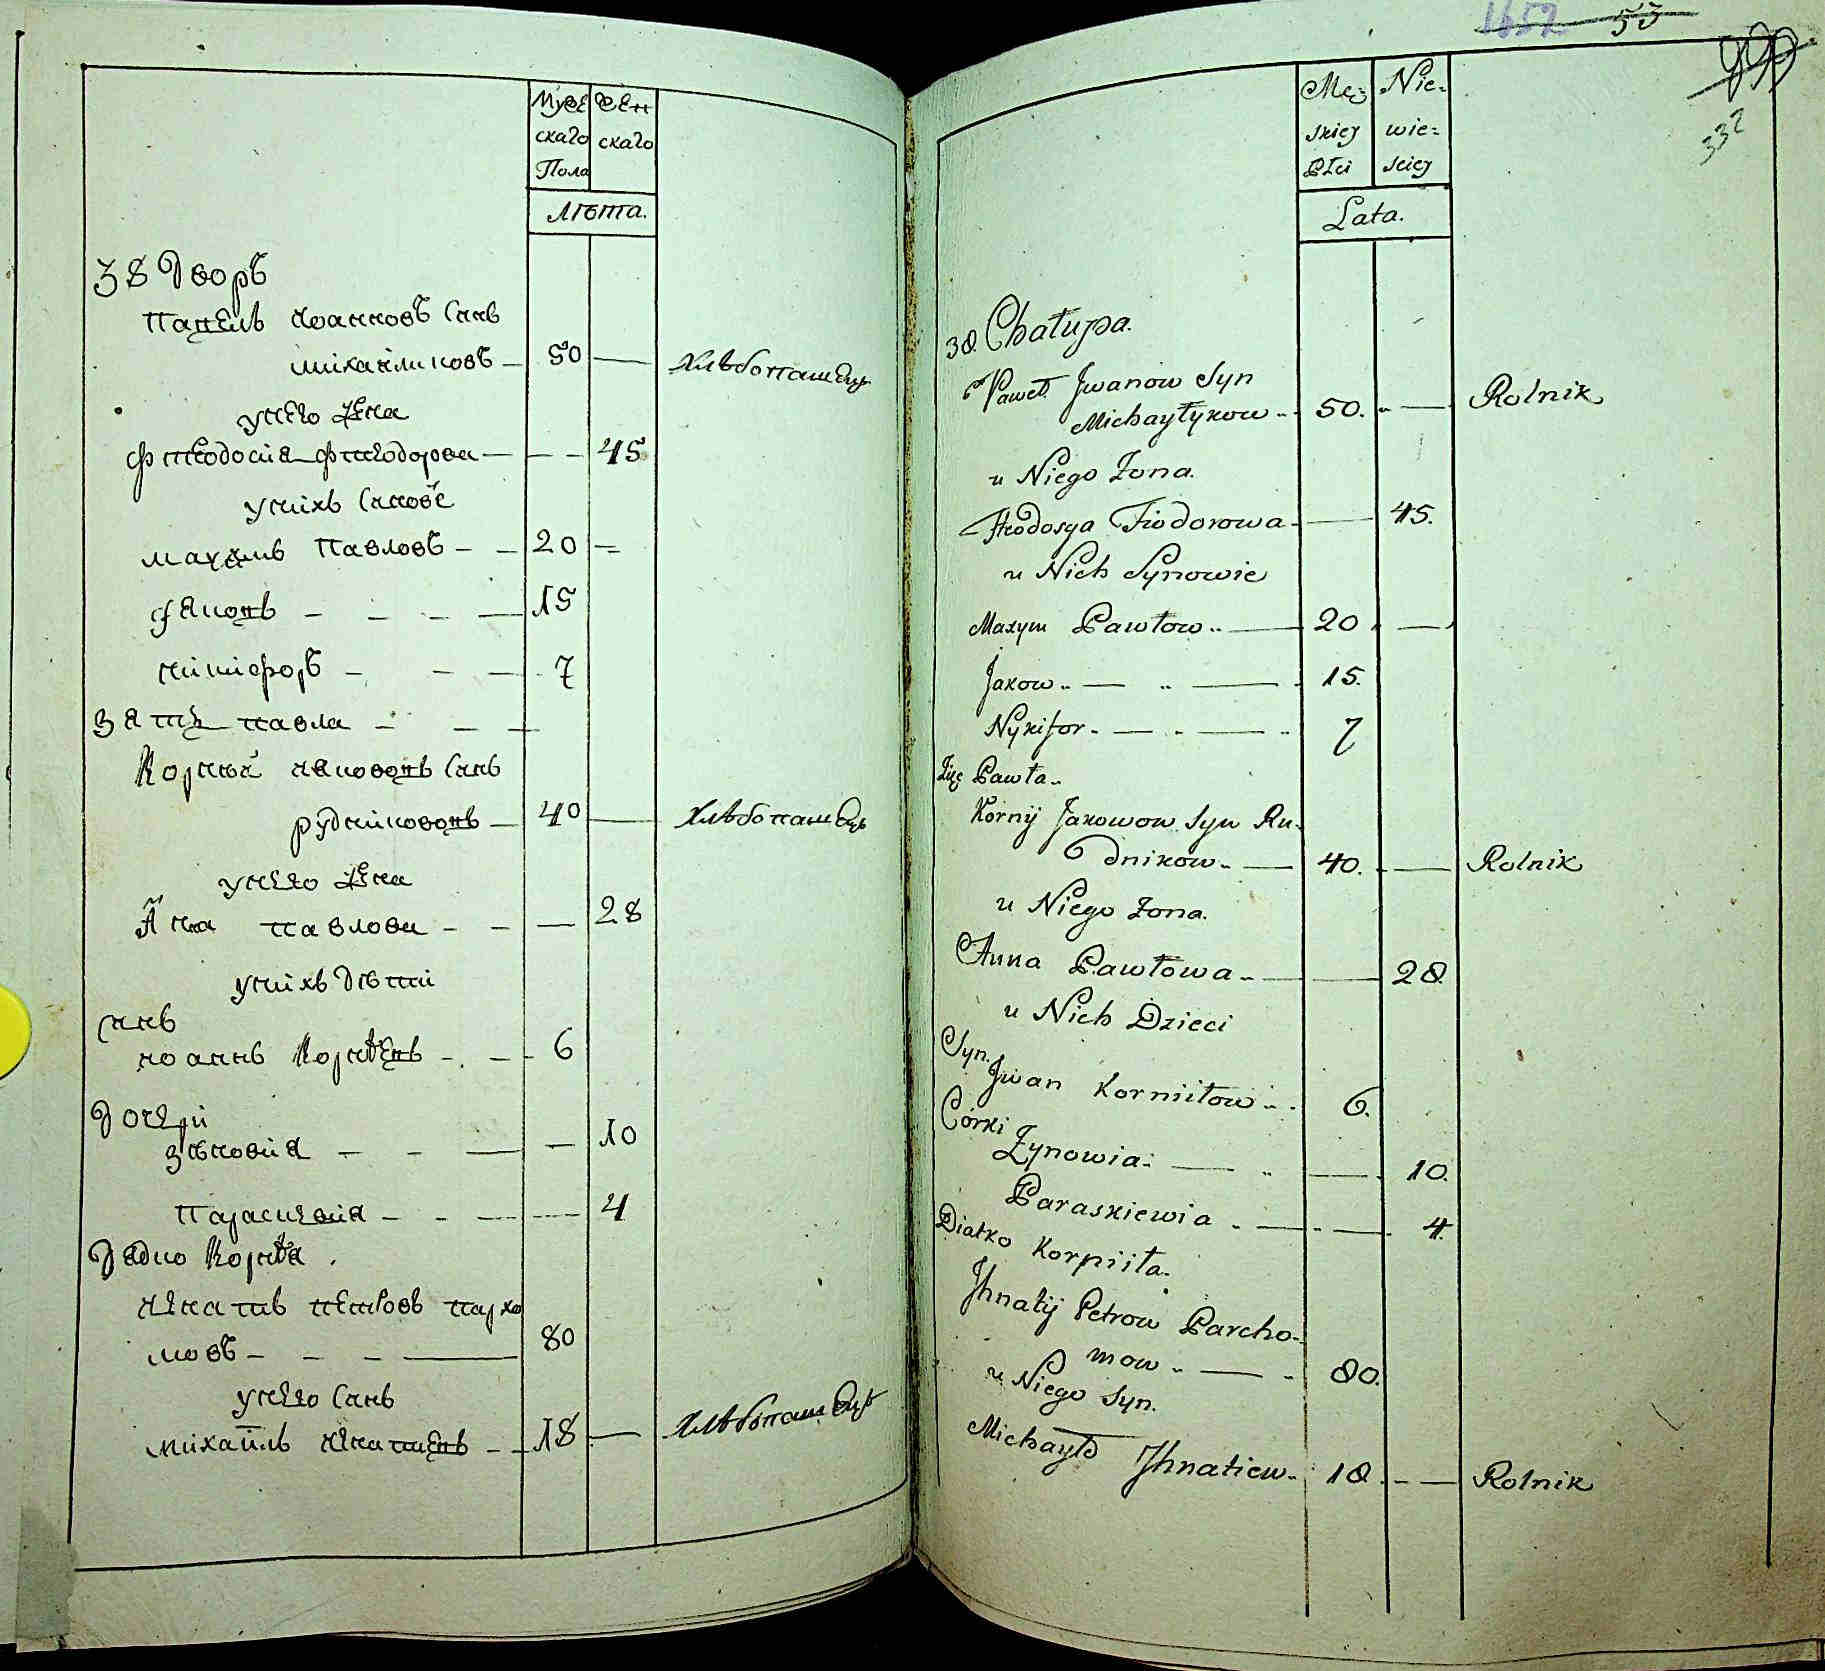 Мужескаго Пола
Женскаго
Лѣта.
38 Дворъ
Павелъ Иоанновъ Сынъ
Михайликовъ — 50 — Хлѣбопашецъ
у него Жена
Феодосія Феодорова — — — 45
у нихъ Сынове
Маѯимъ Павловъ — — 20 —
Яковъ — — — — 15
Никифоръ — — — 7
Зять Павла — — —
Корнѣй Яковов Сынъ
Рудниковъ — 40 — Хлѣбопашецъ
у него Жена
Анна Павлова — — — 28
у нихъ Дѣти
Сынъ
Иоаннъ Корнѣевъ — — 6
Дочери
Зѣновия — — — — 10
Параскевия — — — — 4
Дядко Корнѣя.
Игнатъ Петровъ Пархо
мовъ — — — — 80
у него Сынъ
Михайлъ Игнатиевъ — — 18 — Хлѣбопашецъ
1652 53
999
332
Męzskiey Płci
Niewieściey
Lata.
38. Chałupa.
Paweł Jwanow Syn
Michayłykow — 50. — Rolnik
u Niego Żona.
Fteodosya Fiodorowa — 45.
u Nich Synowie
Maxym Pawłow — 20 —
Jakow — — 15.
Nykifor — — 7
Zięć Pawła
Korniy Jakowow Syn Ru-
dnikow — 40. — Rolnik
u Niego Żona.
Anna Pawłowa — 28.
u Nich Dzieci
Syn.
Jwan Korniiłow 6.
Córki
Zynowia — — 10.
Paraskiewia — — 4.
Diatko Korniiła.
Jhnatij Petrow Parcho-
mow — 80.
u Niego Syn.
Michayło Jhnatiew 18 — Rolnik